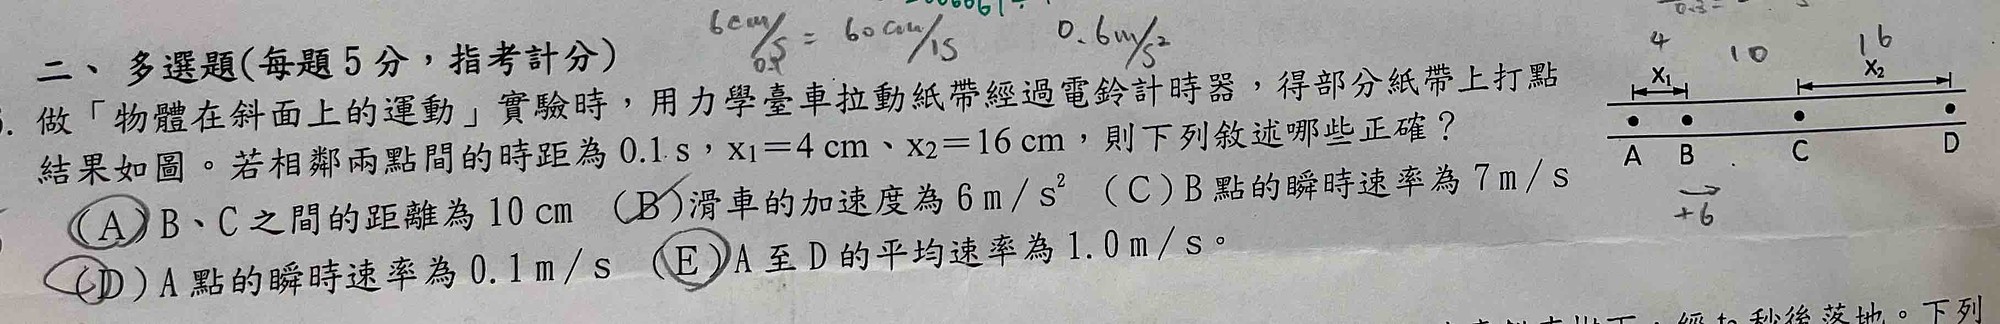 6cm/0.1s = 60cm/1s 0.6m/s²
二、 多選題(每題 5 分，指考計分)
4 10 16
X₁ X₂
做「物體在斜面上的運動」實驗時，用力學臺車拉動紙帶經過電鈴計時器，得部分紙帶上打點
結果如圖。若相鄰兩點間的時距為 0.1 s，x₁＝4 cm、x₂＝16 cm，則下列敘述哪些正確？
A B C D
+6
(A)B、C 之間的距離為 10 cm (B)滑車的加速度為 6 m／s² (C)B 點的瞬時速率為 7 m／s
(D)A 點的瞬時速率為 0.1 m／s (E)A 至 D 的平均速率為 1.0 m／s。
秒後落地。下列